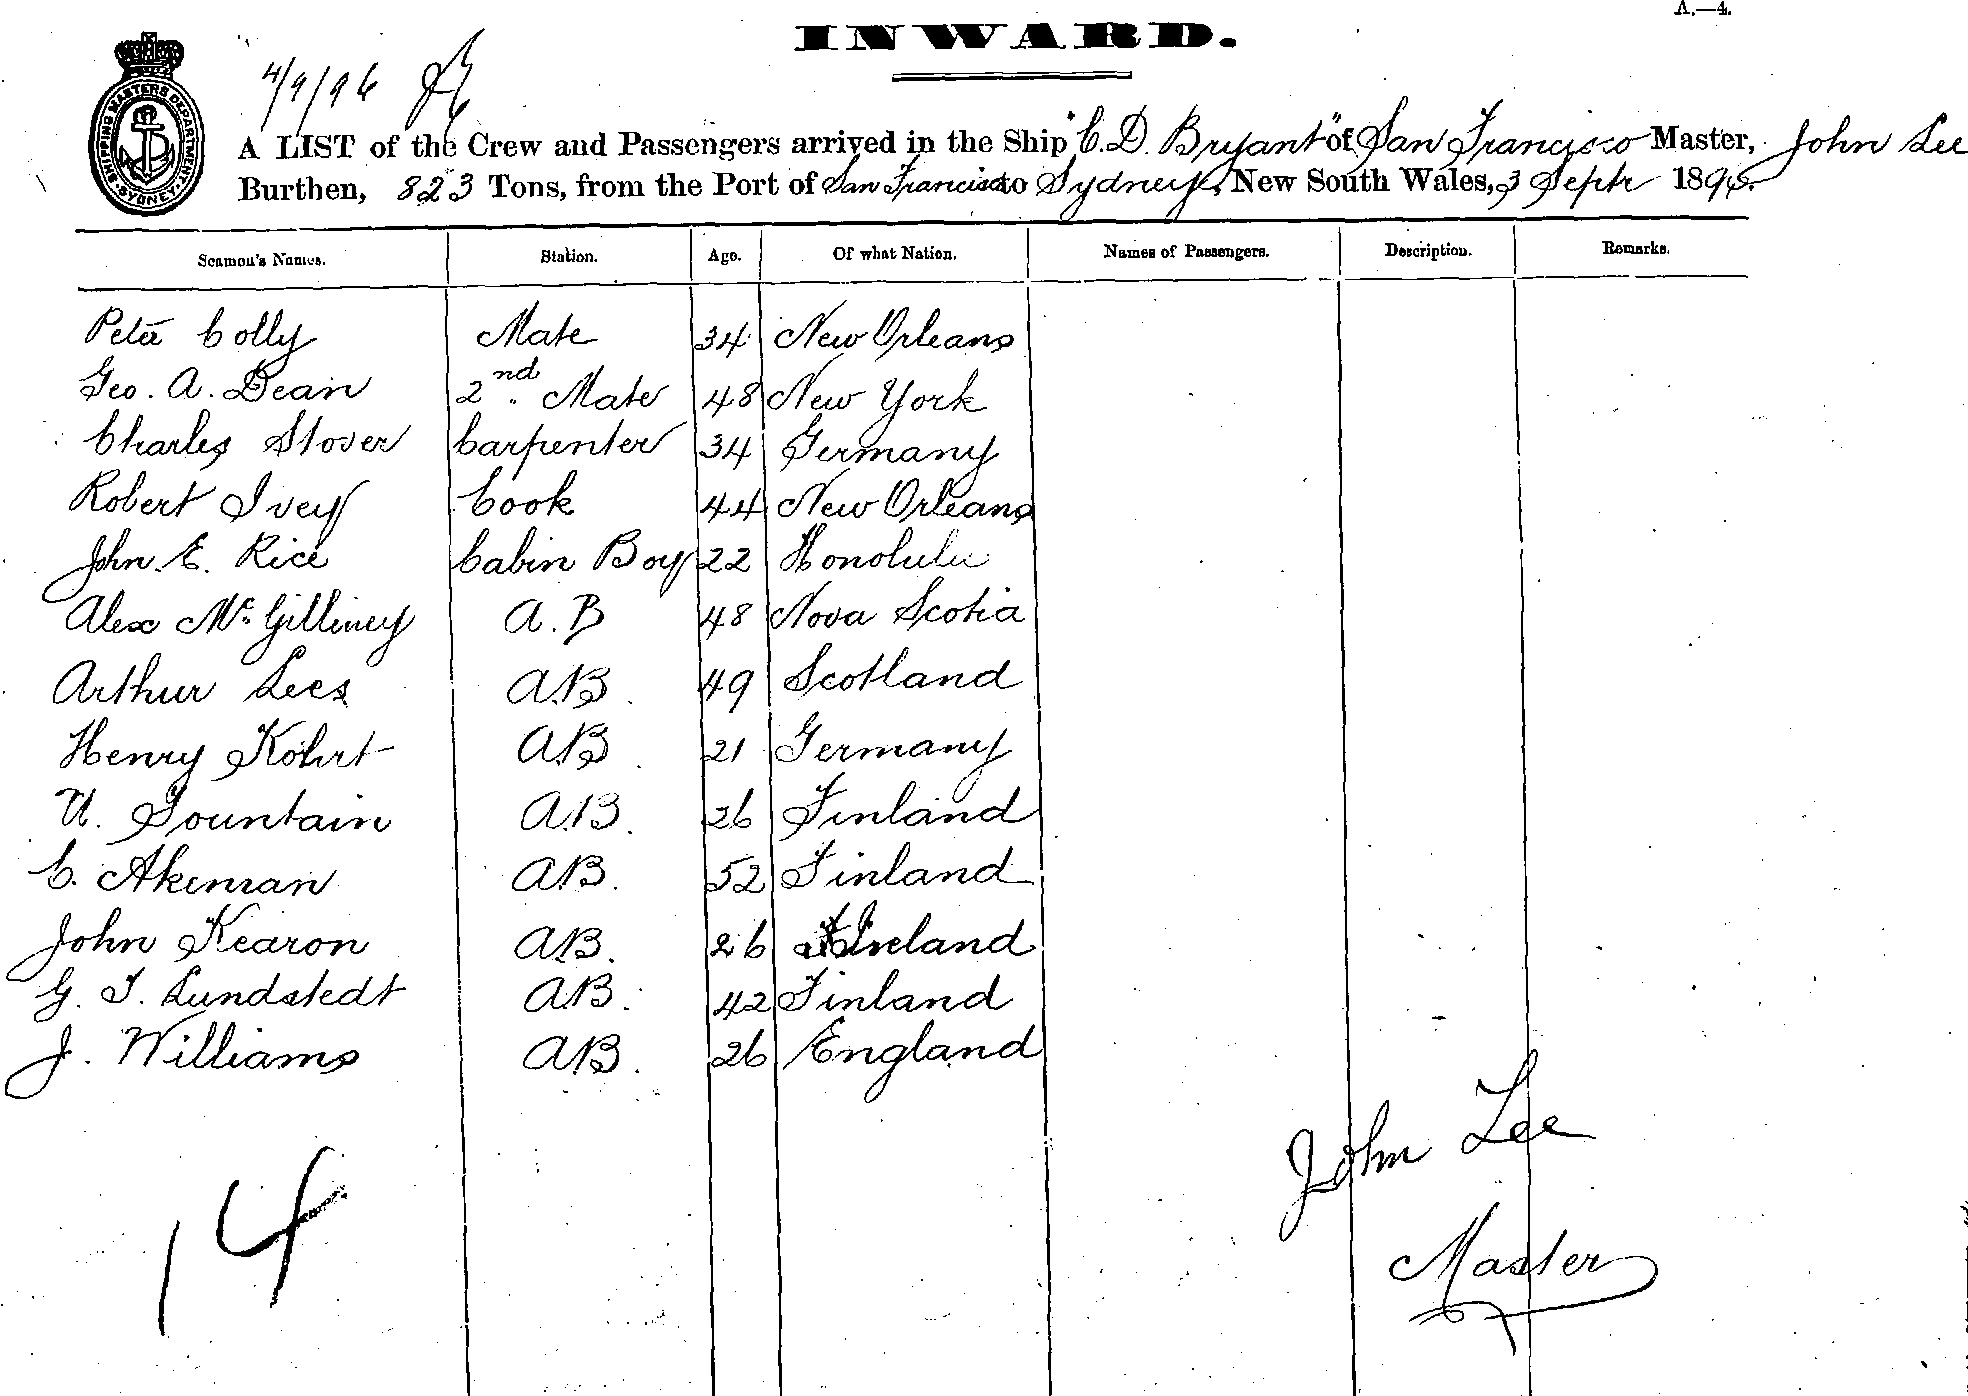 A.—4.
INWARD.
4/9/96
SHIPPING MASTERS DEPARTMENT SYDNEY
A LIST of the Crew and Passengers arrived in the Ship "C. D. Bryant" of San Francisco Master, John Lee
Burthen, 823 Tons, from the Port of San Francisco to Sydney, New South Wales, 3 Septr 1896.
Seamen's Names. Station. Age. Of what Nation. Names of Passengers. Description. Remarks.
Peter Colly Mate 34 New Orleans
Geo. A. Dean 2nd. Mate 48 New York
Charles Stover Carpenter 34 Germany
Robert Ivey Cook 44 New Orleans
John. E. Rice Cabin Boy 22 Honolulu
Alex McGilliney A.B 48 Nova Scotia
Arthur Lees A.B. 49 Scotland
Henry Kohrt A.B. 21 Germany
U. Fountain A.B. 26 Finland
C. Akeman A.B. 52 Finland
John Kearon A.B. 26 Ireland
G. F. Lundstedt A.B. 42 Finland
J. Williams A.B. 26 England
John Lee
14
Master